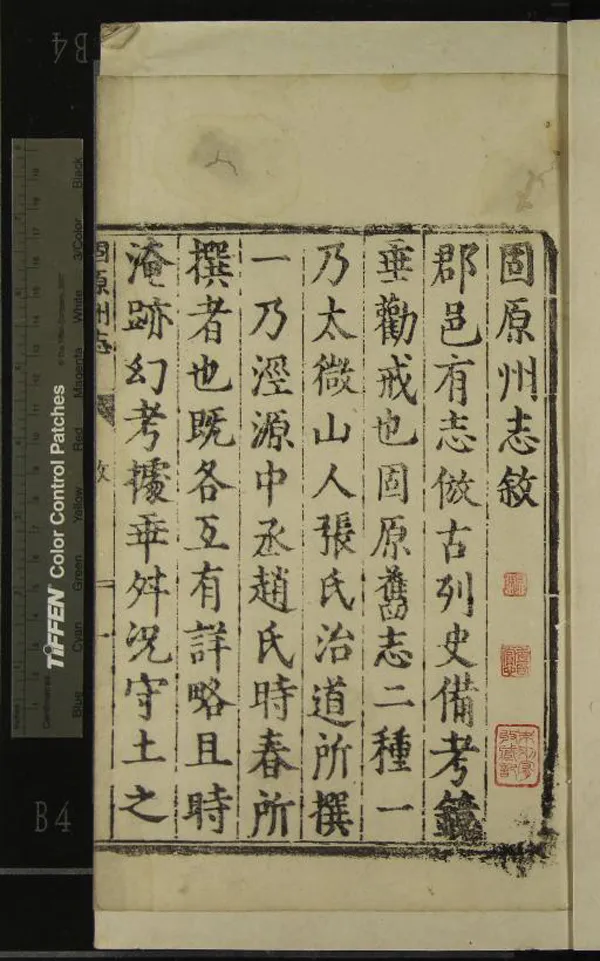 固原州志敘
郡邑有志倣古列史備考鏡
垂勸戒也固原舊志二種一
乃太微山人張氏治道所撰
一乃涇源中丞趙氏時春所
撰者也既各互有詳略且時
淹跡幻考據乖舛況守土之
固原州志
敘
一
B4
B4
TIFFEN Color Control Patches
© The Tiffen Company, 2007
Centimetres
Blue Cyan Green Yellow Red Magenta White 3/Color Black